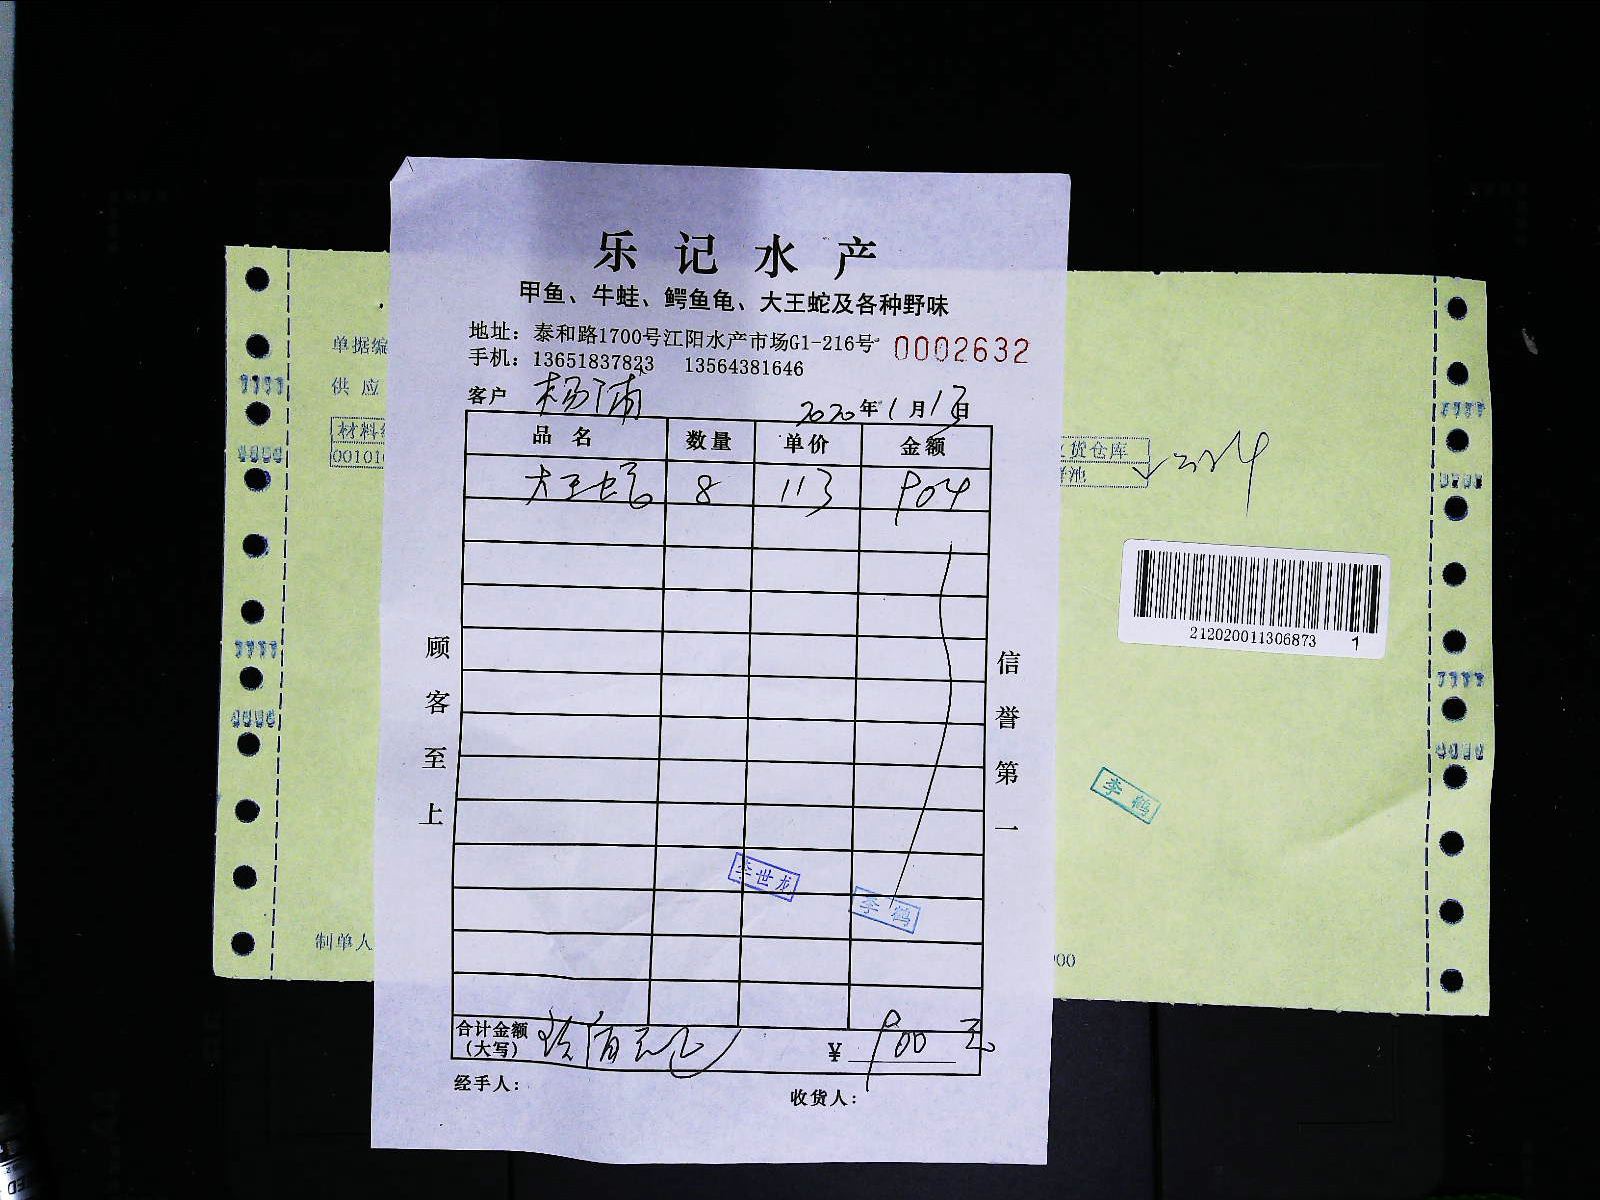 乐记水产
甲鱼、牛蛙、鳄鱼龟、大王蛇及各种野味
地址：泰和路1700号江阳水产市场G1-216号
0002632
手机：13651837823 13564381646
客户 杨浦 2020年1月13日
品名 数量 单价 金额
大王蛇 8 113 904
顾客至上
信誉第一
李世龙
李鹤
合计金额（大写） 玖佰元 ¥ 900 元
经手人：
收货人：
单据编
供应
材料
00101
制单人
货仓库
池
212020011306873 1
李鹤
00